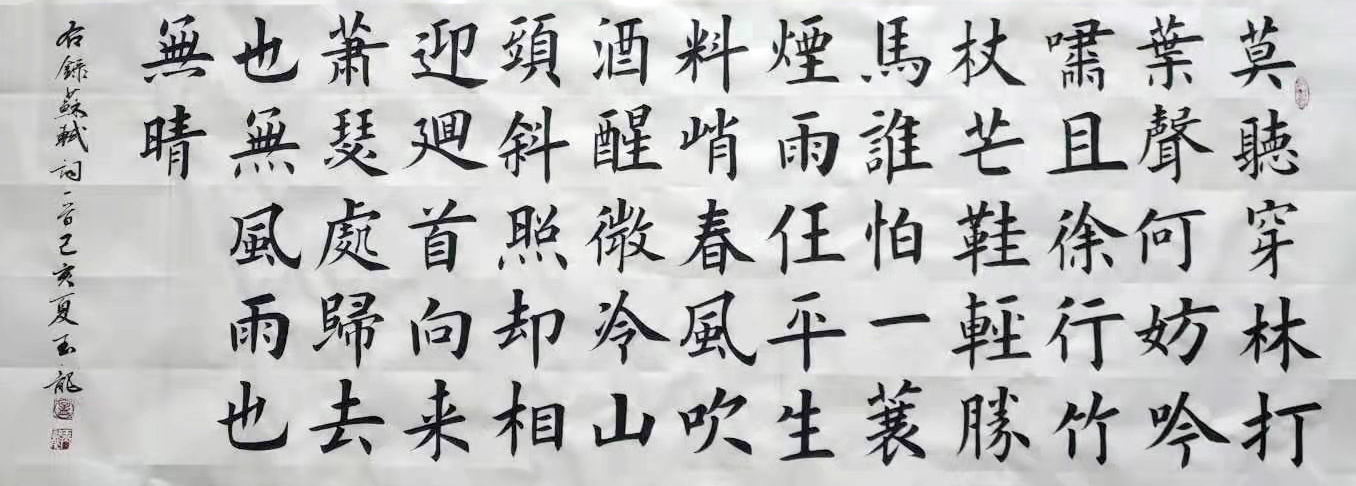 莫聽穿林打
葉聲何妨吟
嘯且徐行竹
杖芒鞋輕勝
馬誰怕一蓑
煙雨任平生
料峭春風吹
酒醒微冷山
頭斜照却相
迎廻首向来
蕭瑟處歸去
也無風雨也
無晴
右錄蘇軾詞一首己亥夏玉龍